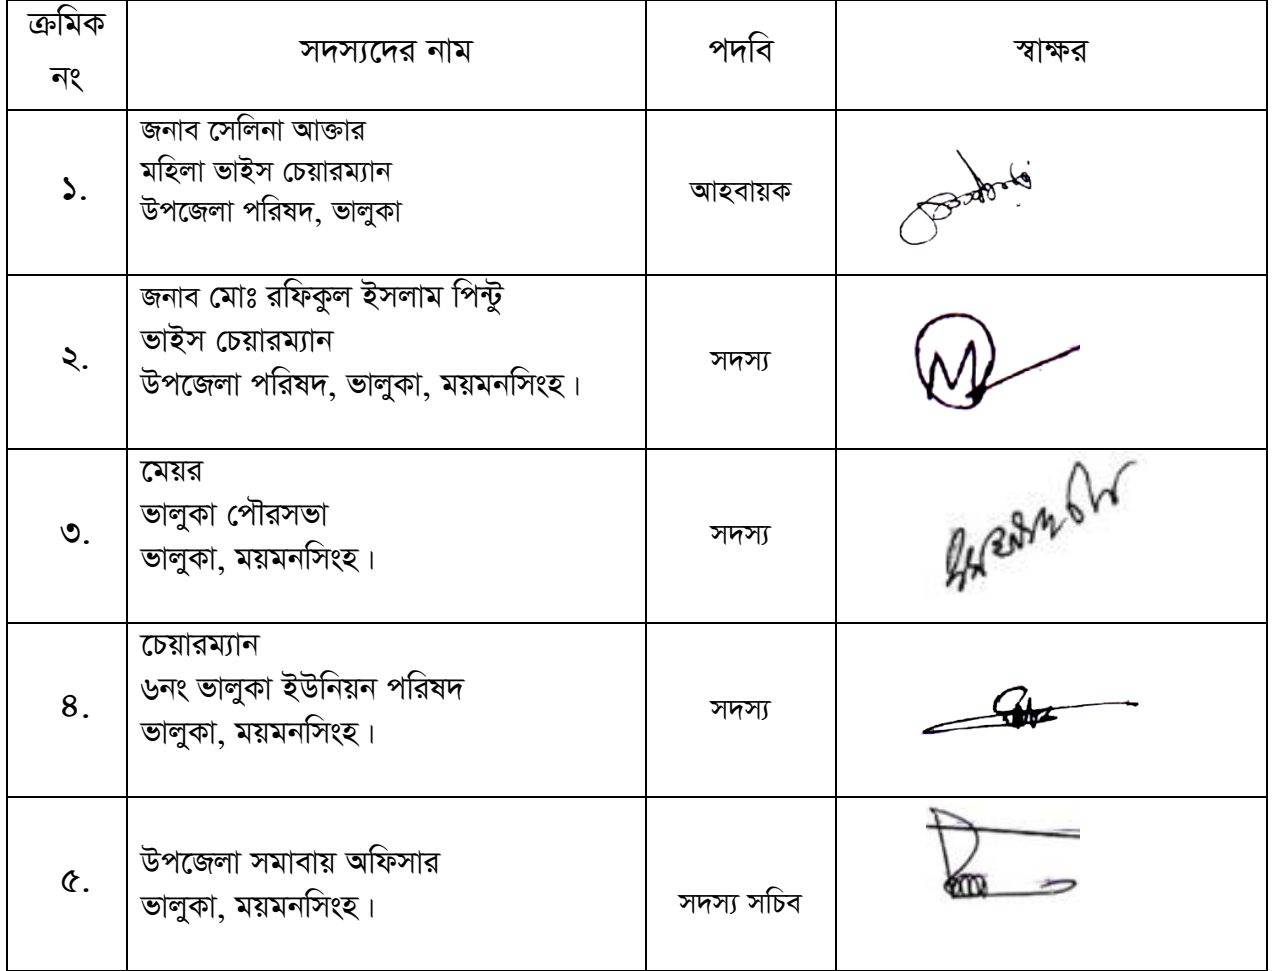 ক্রমিক নং সদস্যদের নাম পদবি স্বাক্ষর
১. জনাব সেলিনা আক্তার
মহিলা ভাইস চেয়ারম্যান
উপজেলা পরিষদ, ভালুকা
আহবায়ক
২. জনাব মোঃ রফিকুল ইসলাম পিন্টু
ভাইস চেয়ারম্যান
উপজেলা পরিষদ, ভালুকা, ময়মনসিংহ।
সদস্য
৩. মেয়র
ভালুকা পৌরসভা
ভালুকা, ময়মনসিংহ।
সদস্য
৪. চেয়ারম্যান
৬নং ভালুকা ইউনিয়ন পরিষদ
ভালুকা, ময়মনসিংহ।
সদস্য
৫. উপজেলা সমাবায় অফিসার
ভালুকা, ময়মনসিংহ।
সদস্য সচিব